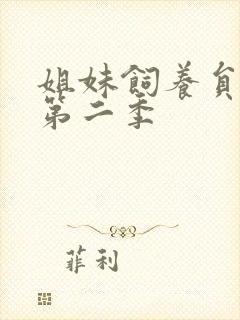 姐妹飼養員
第二季
菲利